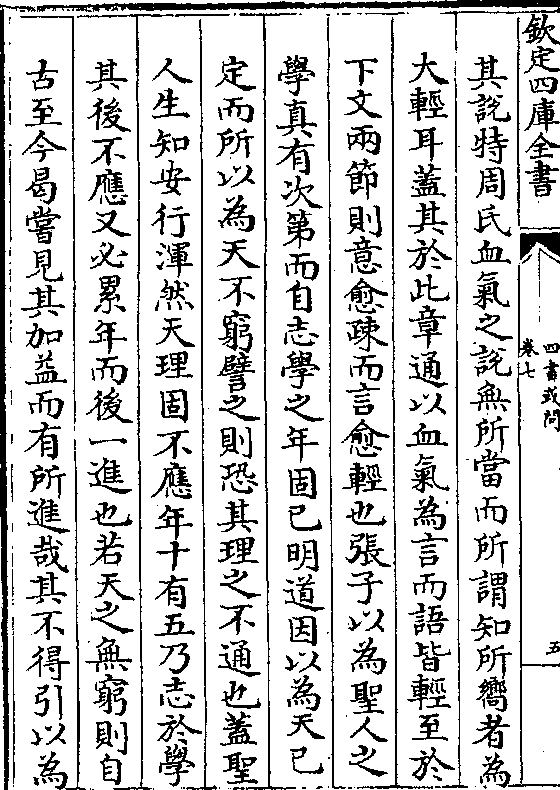 欽定四庫全書
四書或問
卷七
五
其說特周氏血氣之說無所當而所謂知所嚮者為
大輕耳蓋其於此章通以血氣為言而語皆輕至於
下文兩節則意愈疎而言愈輕也張子以為聖人之
學真有次第而自志學之年固已明道因以為天已
定而所以為天不窮譬之則恐其理之不通也蓋聖
人生知安行渾然天理固不應年十有五乃志於學
其後不應又必累年而後一進也若天之無窮則自
古至今曷嘗見其加益而有所進哉其不得引以為